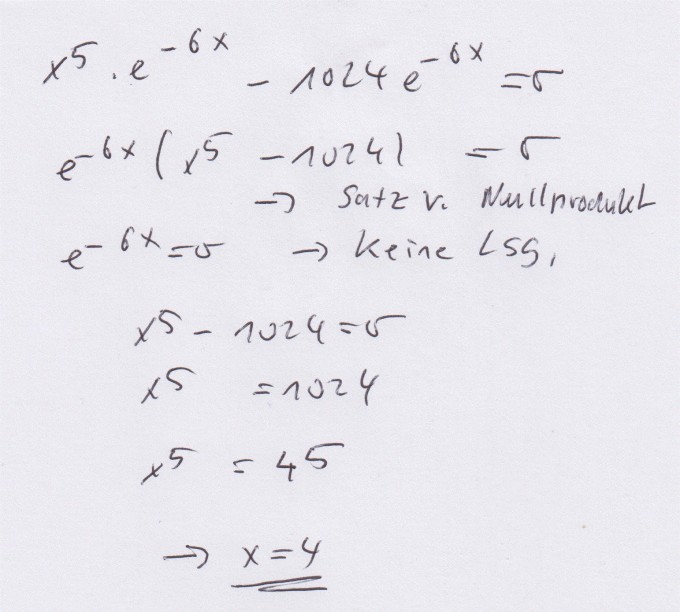 x⁵ · e⁻⁶ˣ - 1024 e⁻⁶ˣ = 0
e⁻⁶ˣ (x⁵ - 1024) = 0
→ Satz v. Nullprodukt
e⁻⁶ˣ = 0 → keine LSG,
x⁵ - 1024 = 0
x⁵ = 1024
x⁵ = 4⁵
→ x = 4